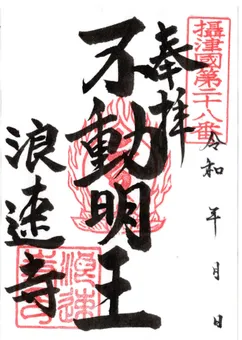 攝津國第二十八番
奉拝
令和 年 月 日
不動明王
浪速寺
浪速寺印